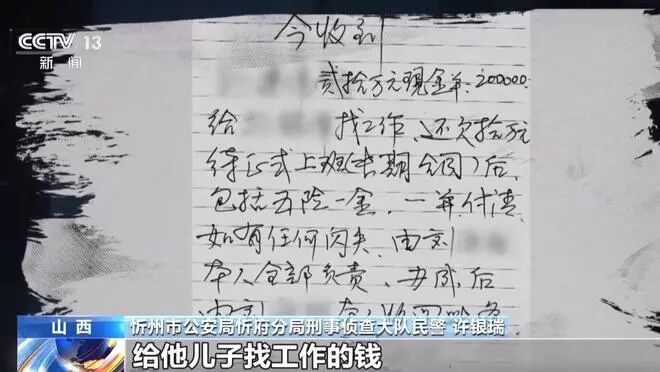 CCTV 13
新闻
今收到
贰拾万元现金羊:200000.
给 找工作、还欠拾万元
待正式上班(长期合同)后,
包括五险一金,一并付清
如有任何闪失,由刘
本人全部负责、办成后
由刘
山西
忻州市公安局忻府分局刑事侦查大队民警 许银瑞
给他儿子找工作的钱